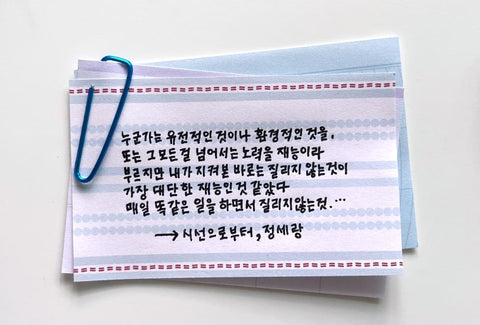 누군가는 유전적인 것이나 환경적인 것을,
또는 그 모든 걸 넘어서는 노력을 재능이라
부르지만 내가 지켜본 바로는 질리지 않는것이
가장 대단한 재능인 것 같았다
매일 똑같은 일을 하면서 질리지않는것....
→ 시선으로부터, 정세랑